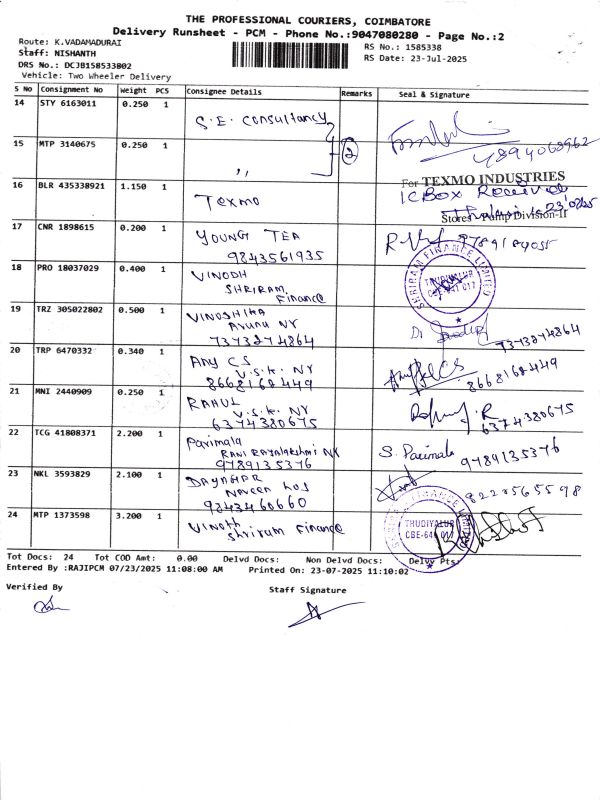 THE PROFESSIONAL COURIERS, COIMBATORE
Delivery Runsheet - PCM - Phone No.:9047080280 - Page No.:2
Route: K.VADAMADURAI
Staff: NISHANTH
DRS No.: DCJB158533802
Vehicle: Two Wheeler Delivery
RS No.: 1585338
RS Date: 23-Jul-2025
S No Consignment No Weight PCS Consignee Details Remarks Seal & Signature
14 STY 6163011 0.250 1 S.E. Consultancy
15 MTP 3140675 0.250 1 ,, 2
4894068962
16 BLR 435338921 1.150 1 Texmo
For TEXMO INDUSTRIES
1 C Box Received
Stores Pump Division-II
17 CNR 1898615 0.200 1 YOUNG TEA
9843561935
18 PRO 18037029 0.400 1 VINODH
SHRIRAM
Finance
SHRIRAM FINANCE LIMITED
THUDIYALUR
CBE-641 017
19 TRZ 305022802 0.500 1 VINOSHIKA
NY
7373274864
7373274864
20 TRP 6470332 0.340 1 Any CS
V.S.K. NY
8668168449
8668168449
21 MNI 2440909 0.250 1 RAHUL
V.S.K. NY
6374380675
6374380675
22 TCG 41808371 2.200 1 Parimala
RANI Rayalakshmi NK
9789135376
S. Parimala
9789135376
23 NKL 3593829 2.100 1 DAYAGAR
NAVEEN
9843468660
24 MTP 1373598 3.200 1 Vinoth
Shriram Finance
FINANCE
THUDIYALUR
CBE-641 017
Tot Docs: 24 Tot COD Amt: 0.00 Delvd Docs: Non Delvd Docs: Delvy Pts:
Entered By :RAJIPCM 07/23/2025 11:08:00 AM Printed On: 23-07-2025 11:10:02
Verified By
Staff Signature